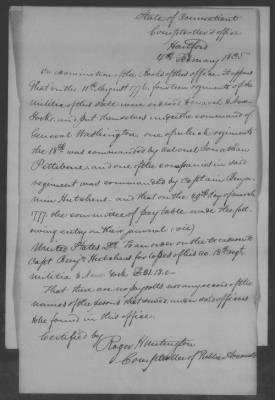 State of Connecticut
Comptroller's office
Hartford
February 1835
On examination of the books of this office it appears
that on the 11th August 1776, fourteen regiments of the
militia of this State were ordered to march to New
York, and put themselves under the command of
General Washington, one of which regiments
the 18th was commanded by Colonel Jonathan
Pettibone, and one of the companies in said
regiment was commanded by Captain Benja
min Hutchens. and that on the day of march
1777. the committee of pay table made the fol
owing entry on their journal (viz)
United States Dr. To an order on the treasurer to
Capt. Benj. Hutchens for losses of his Co. 18th regt
militia to New York £21.18.0
That there are no payrolls nor any record of the
names of the persons that served under said officers
to be found in this office.
Certified by
Roger Huntington
Comptroller of Public Accounts